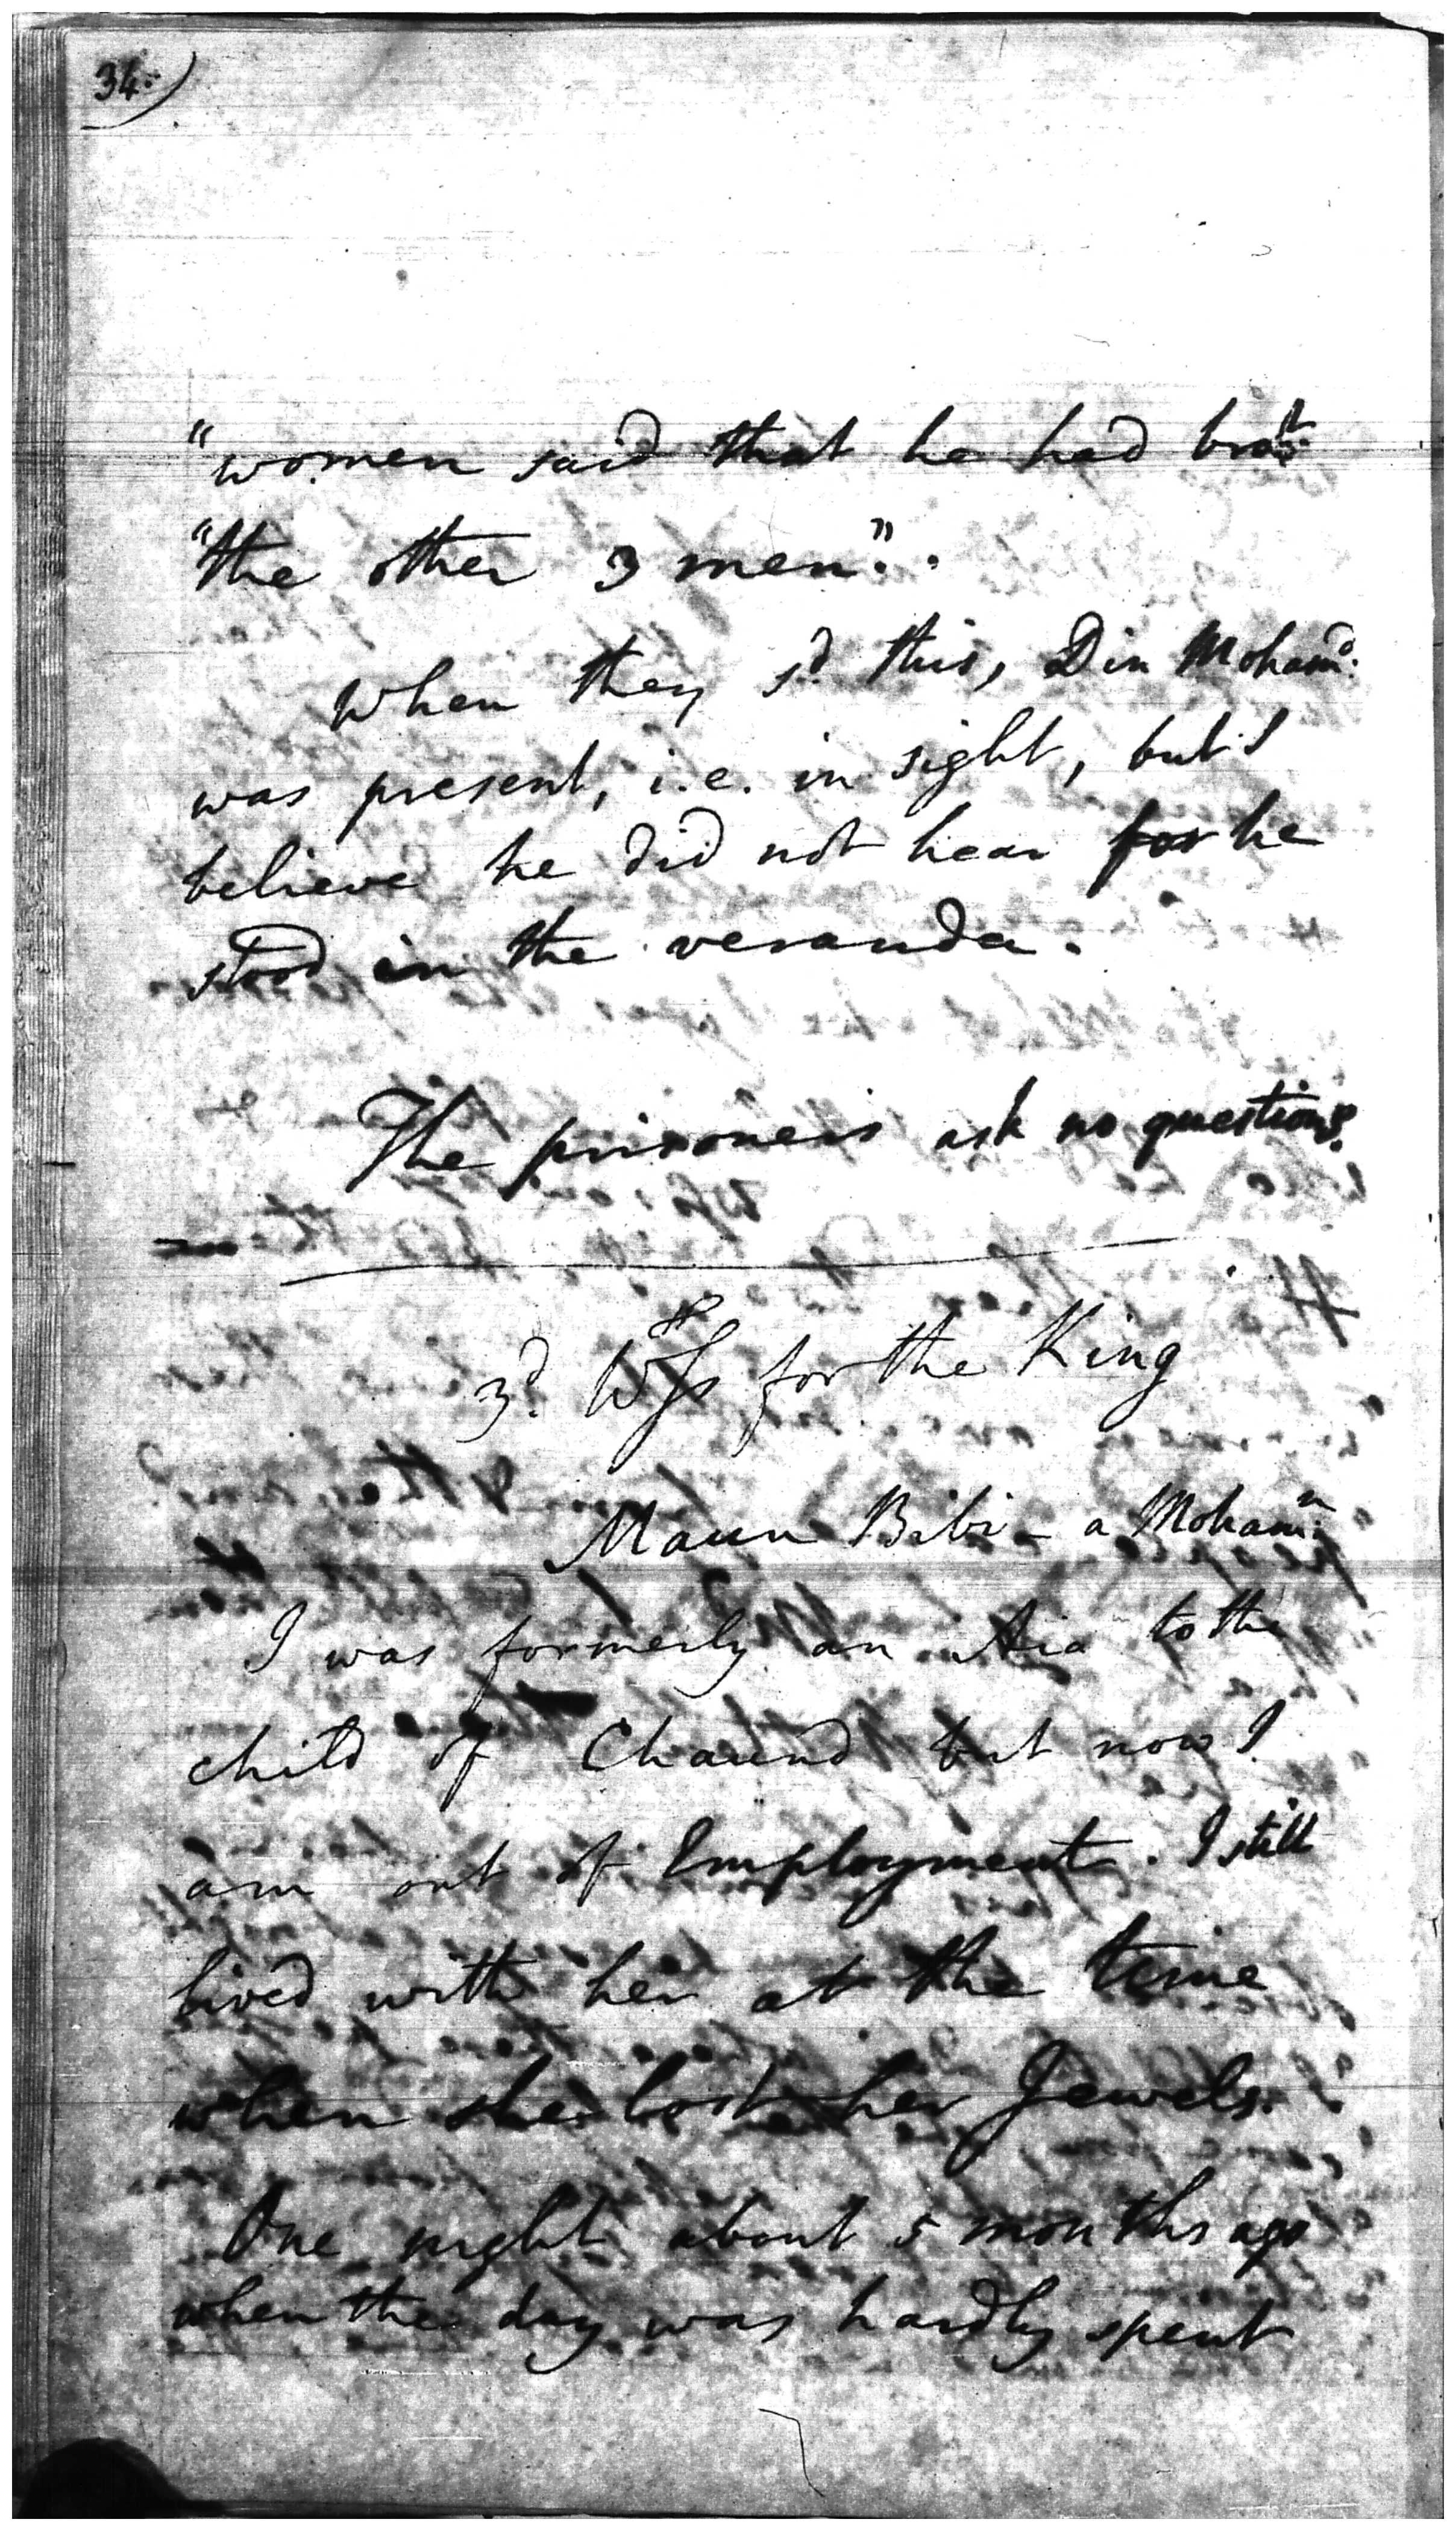 34.
"women said that he had brot.
"the other 3 men".
When they sd. this, Din Mohamd.
was present, i.e. in sight, but I
believe he did not hear for he
stood in the veranda.
The prisoners ask no questions.
3d. Wss for the King
Maun Bibi - a Mohamn.
I was formerly an Aia to the
child of Chaund but now I
am out of Employment. I still
lived with her at the time
when she lost her Jewels.
One night about 5 months ago
when the day was hardly spent